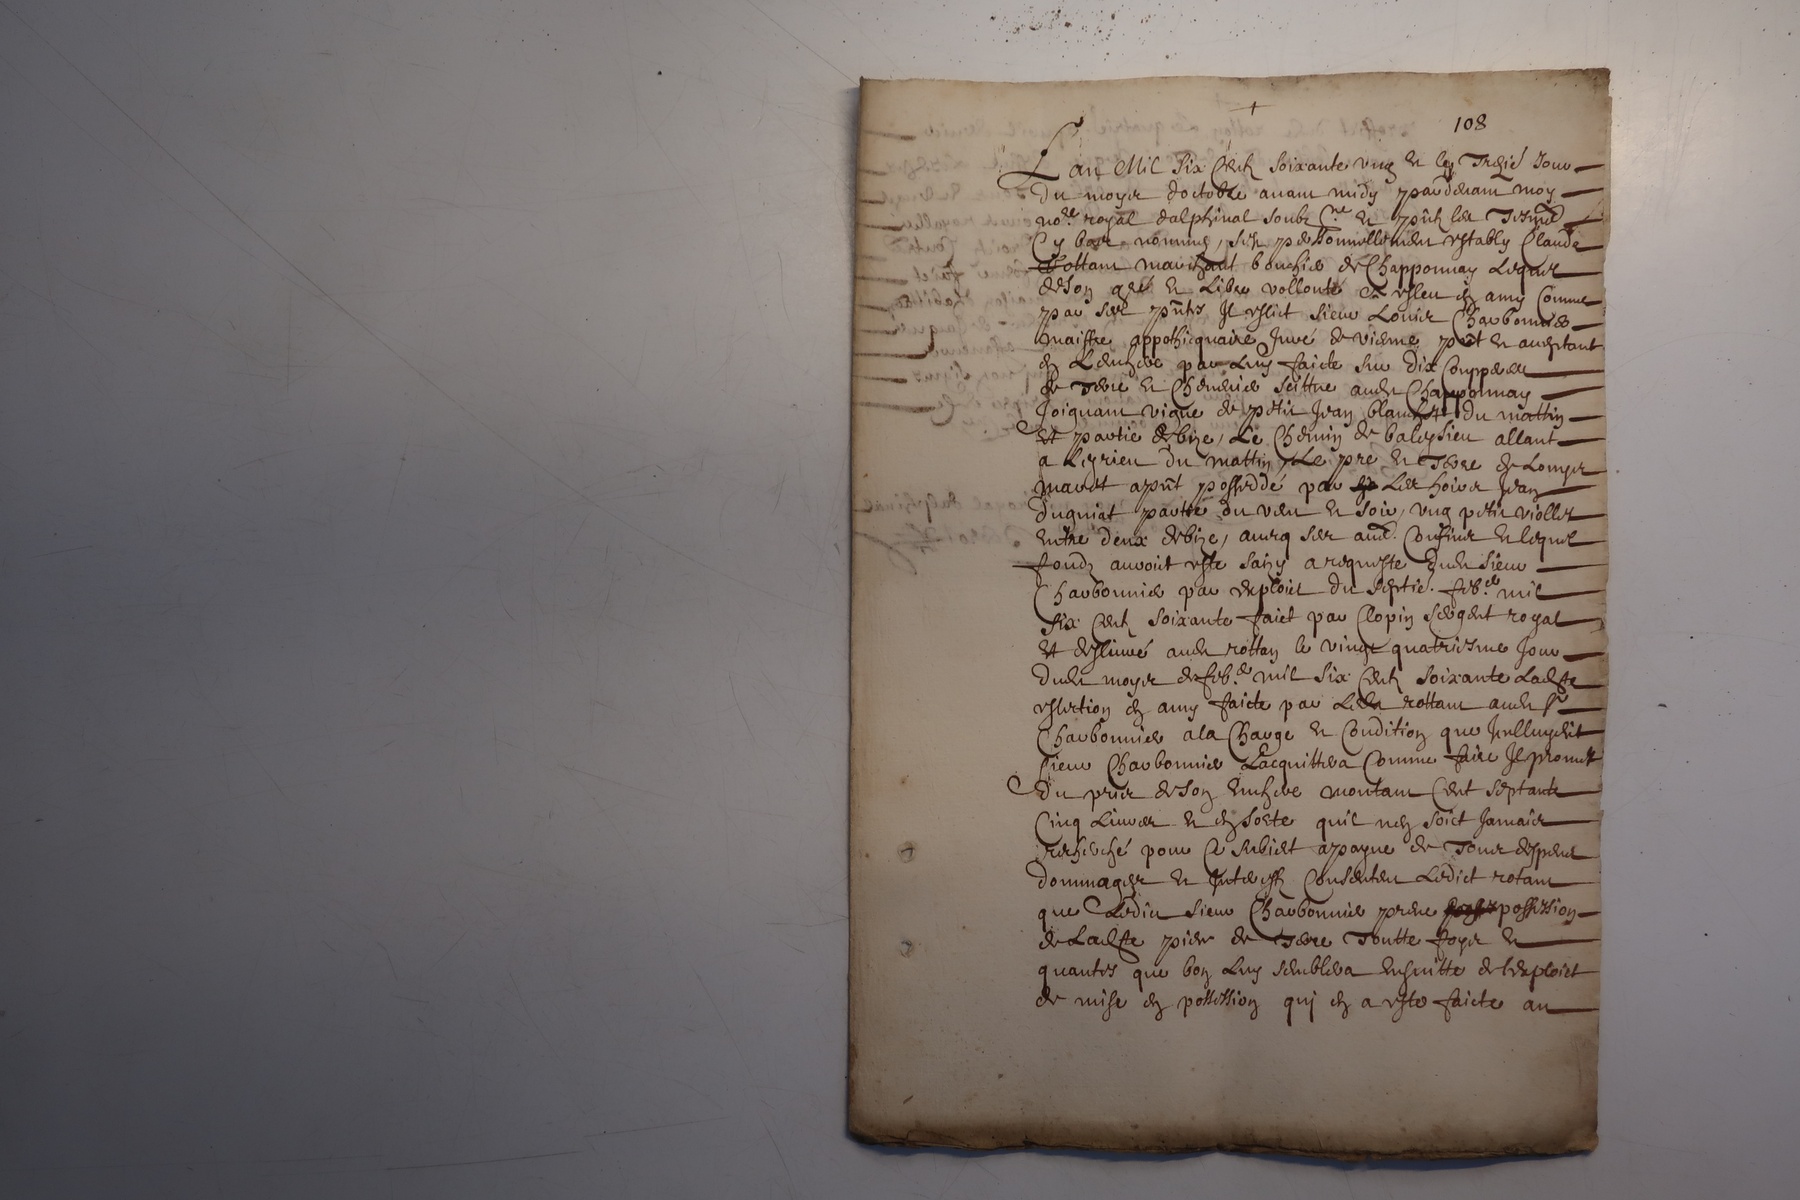 108
Lan Mil Six Centz Soixante ung et le Treizie Jour
du moys doctobre avant midy pardevant moy
no.re royal dalphinal soubz.ne et pntz les Tesmo
Cy bas nommes, sest personnellement estably Claude
Rottam marchant bouchier de Chapponnay Lequel
de son gré et Libre vollonté a esleu en amy Comme
par ses pntes Il eslict sieur Louis Charbonnier
maistre appothicquaire Juré de vienne pnt et acceptant
en Lenchere par Luy faicte sur dix Couppees
de Terre et Chenevier scittue audit Chapponnay
Joignant vigne de petit Jean blanchet du mattin
et partie de bize, Le Chemin de baleysieu allant
a Leyrieu du mattin, Le pre et Terre de Louys
mavet apnt possedde par Les hoirs Jean
duguiat partie du vent et soir, ung petit viollet
entre deux de bize, avecq ses aues Confins et lequel
fondz auroit este saizy a requeste dudit sieur
Charbonnier par exploict du septie. feb.er mil
six centz soixante faict par Clopin sergent royal
et deslivré audit rottan le vingt quatriesme Jour
dudit moys de feb.er mil six centz soixante Ladite
eslection en amy faicte par Ledit rottam audit sr
Charbonnier a la Charge et Condition que Icelluydit
sieur Charbonnier Lacquittera Comme faire Il promet
du prix de son enchere montant Cent septante
Cinq Livres et en sorte quil nen soict Jamais
recherché pour Ce subiect a payne de Tous despens
dommages et Interestz Consentant Ledict rotam
que Ledit sieur Charbonnier prene possession
de Ladite piece de Terre Toutte foys et
quantes que bon Luy semblera ensuitte de lexploict
de mise en possession qui en a este faicte au